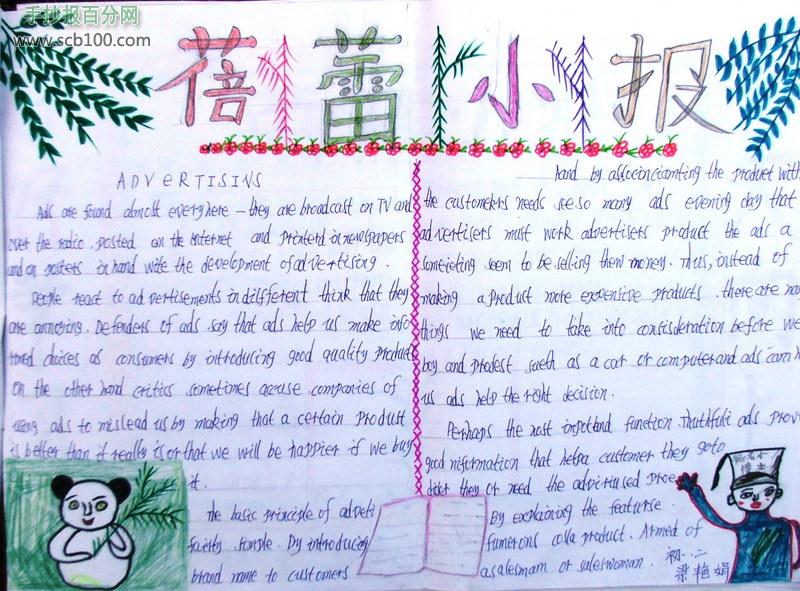 手抄报百分网
www.scb100.com
蓓蕾小报
ADVERTISINS
Ads are found almost everyhere - they are broadcast on TV and
over the radio. posted on the internet and printend in newspapers
and on posters in hand with the development of advertising.
People react to advertisements in different think that they
are annoying. Defenders of ads say that ads help us make info
rmed choices as consumers by introducing good quality product
on the other hand critics sometimes accuse companies of
using ads to mislead us by making that a certain product
is better than it really is or that we will be happier if we buy
it.
The basic principle of adveti
fairly simple. By introducing
brand name to customers
hand by the product with
the customekrs needs see so many ads evening day that
advertisers must work advertisers product the ads a
seem to be selling them money. Thus, instead of
making a product more expensive products. there are no
things we need to take into consideration before we
boy and such as a car or computer and ads can h
us ads help the right decision.
Perhaps the function. ads prov
good that customer they goto
they or need the
By explaining the
product. Armed of
asalesmam or saleswoman.
博士
初一二
梁艳娟